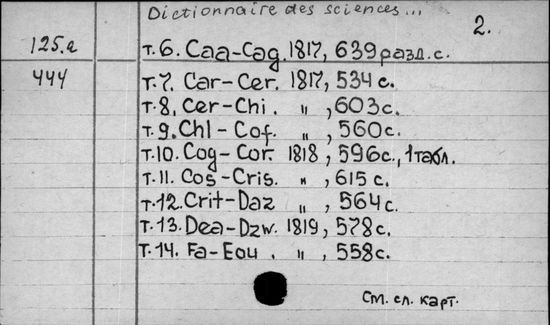 Dictionnaire des sciences...
2.
125.a т.6. Caa-Cag. 1817, 639 разд.с.
444 т.7. Car-Cer. 1817, 534 с.
т.8. Cer-Chi. " , 603с.
т.9. Chl-Cof. " , 560с.
т.10. Cog-Cor. 1818, 596с., 1 табл.
т.11. Cos-Cris. " , 615 с.
т.12. Crit-Daz " , 564 с.
т.13. Dea-Dzw. 1819, 578с.
т.14. Ea-Eou . " , 558с.
См. сл. карт.